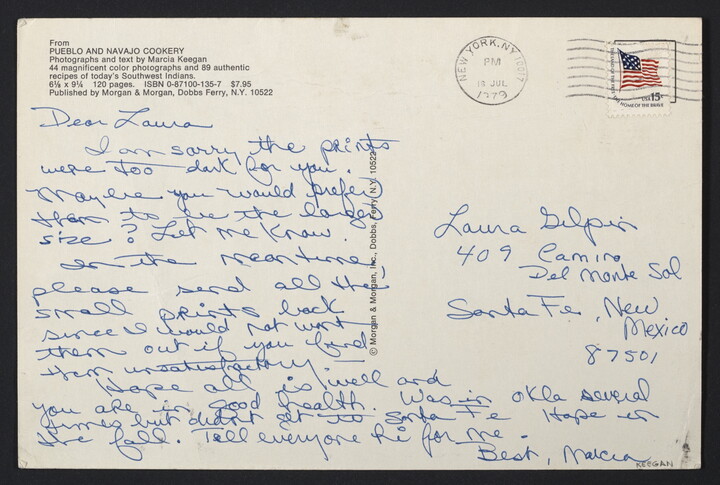 From
PUEBLO AND NAVAJO COOKERY
Photographs and text by Marcia Keegan
44 magnificent color photographs and 89 authentic
recipes of today's Southwest Indians.
6⅛ x 9¼ 120 pages. ISBN 0-87100-135-7 $7.95
Published by Morgan & Morgan, Dobbs Ferry, N.Y. 10522
NEW YORK, N.Y.
PM
18 JUL
1979
USA 15c
THE HOME OF THE BRAVE
Dear Laura
I am sorry the prints
were too dark for you.
Maybe you would prefer
them to be the larger
size? Let me know.
In the meantime,
please send all the
small prints back
since I would not want
them out if you find
them unsatisfactory.
Hope all is well and
you are in good health. Was in Okla several
times but didn't get to Santa Fe Hope in
the fall. Tell everyone hi for me.
Best, Marcia
KEEGAN
© Morgan & Morgan, Inc., Dobbs, Ferry, N.Y. 10522
Laura Gilpin
409 Camino
Del Monte Sol
Santa Fe, New
Mexico
87501